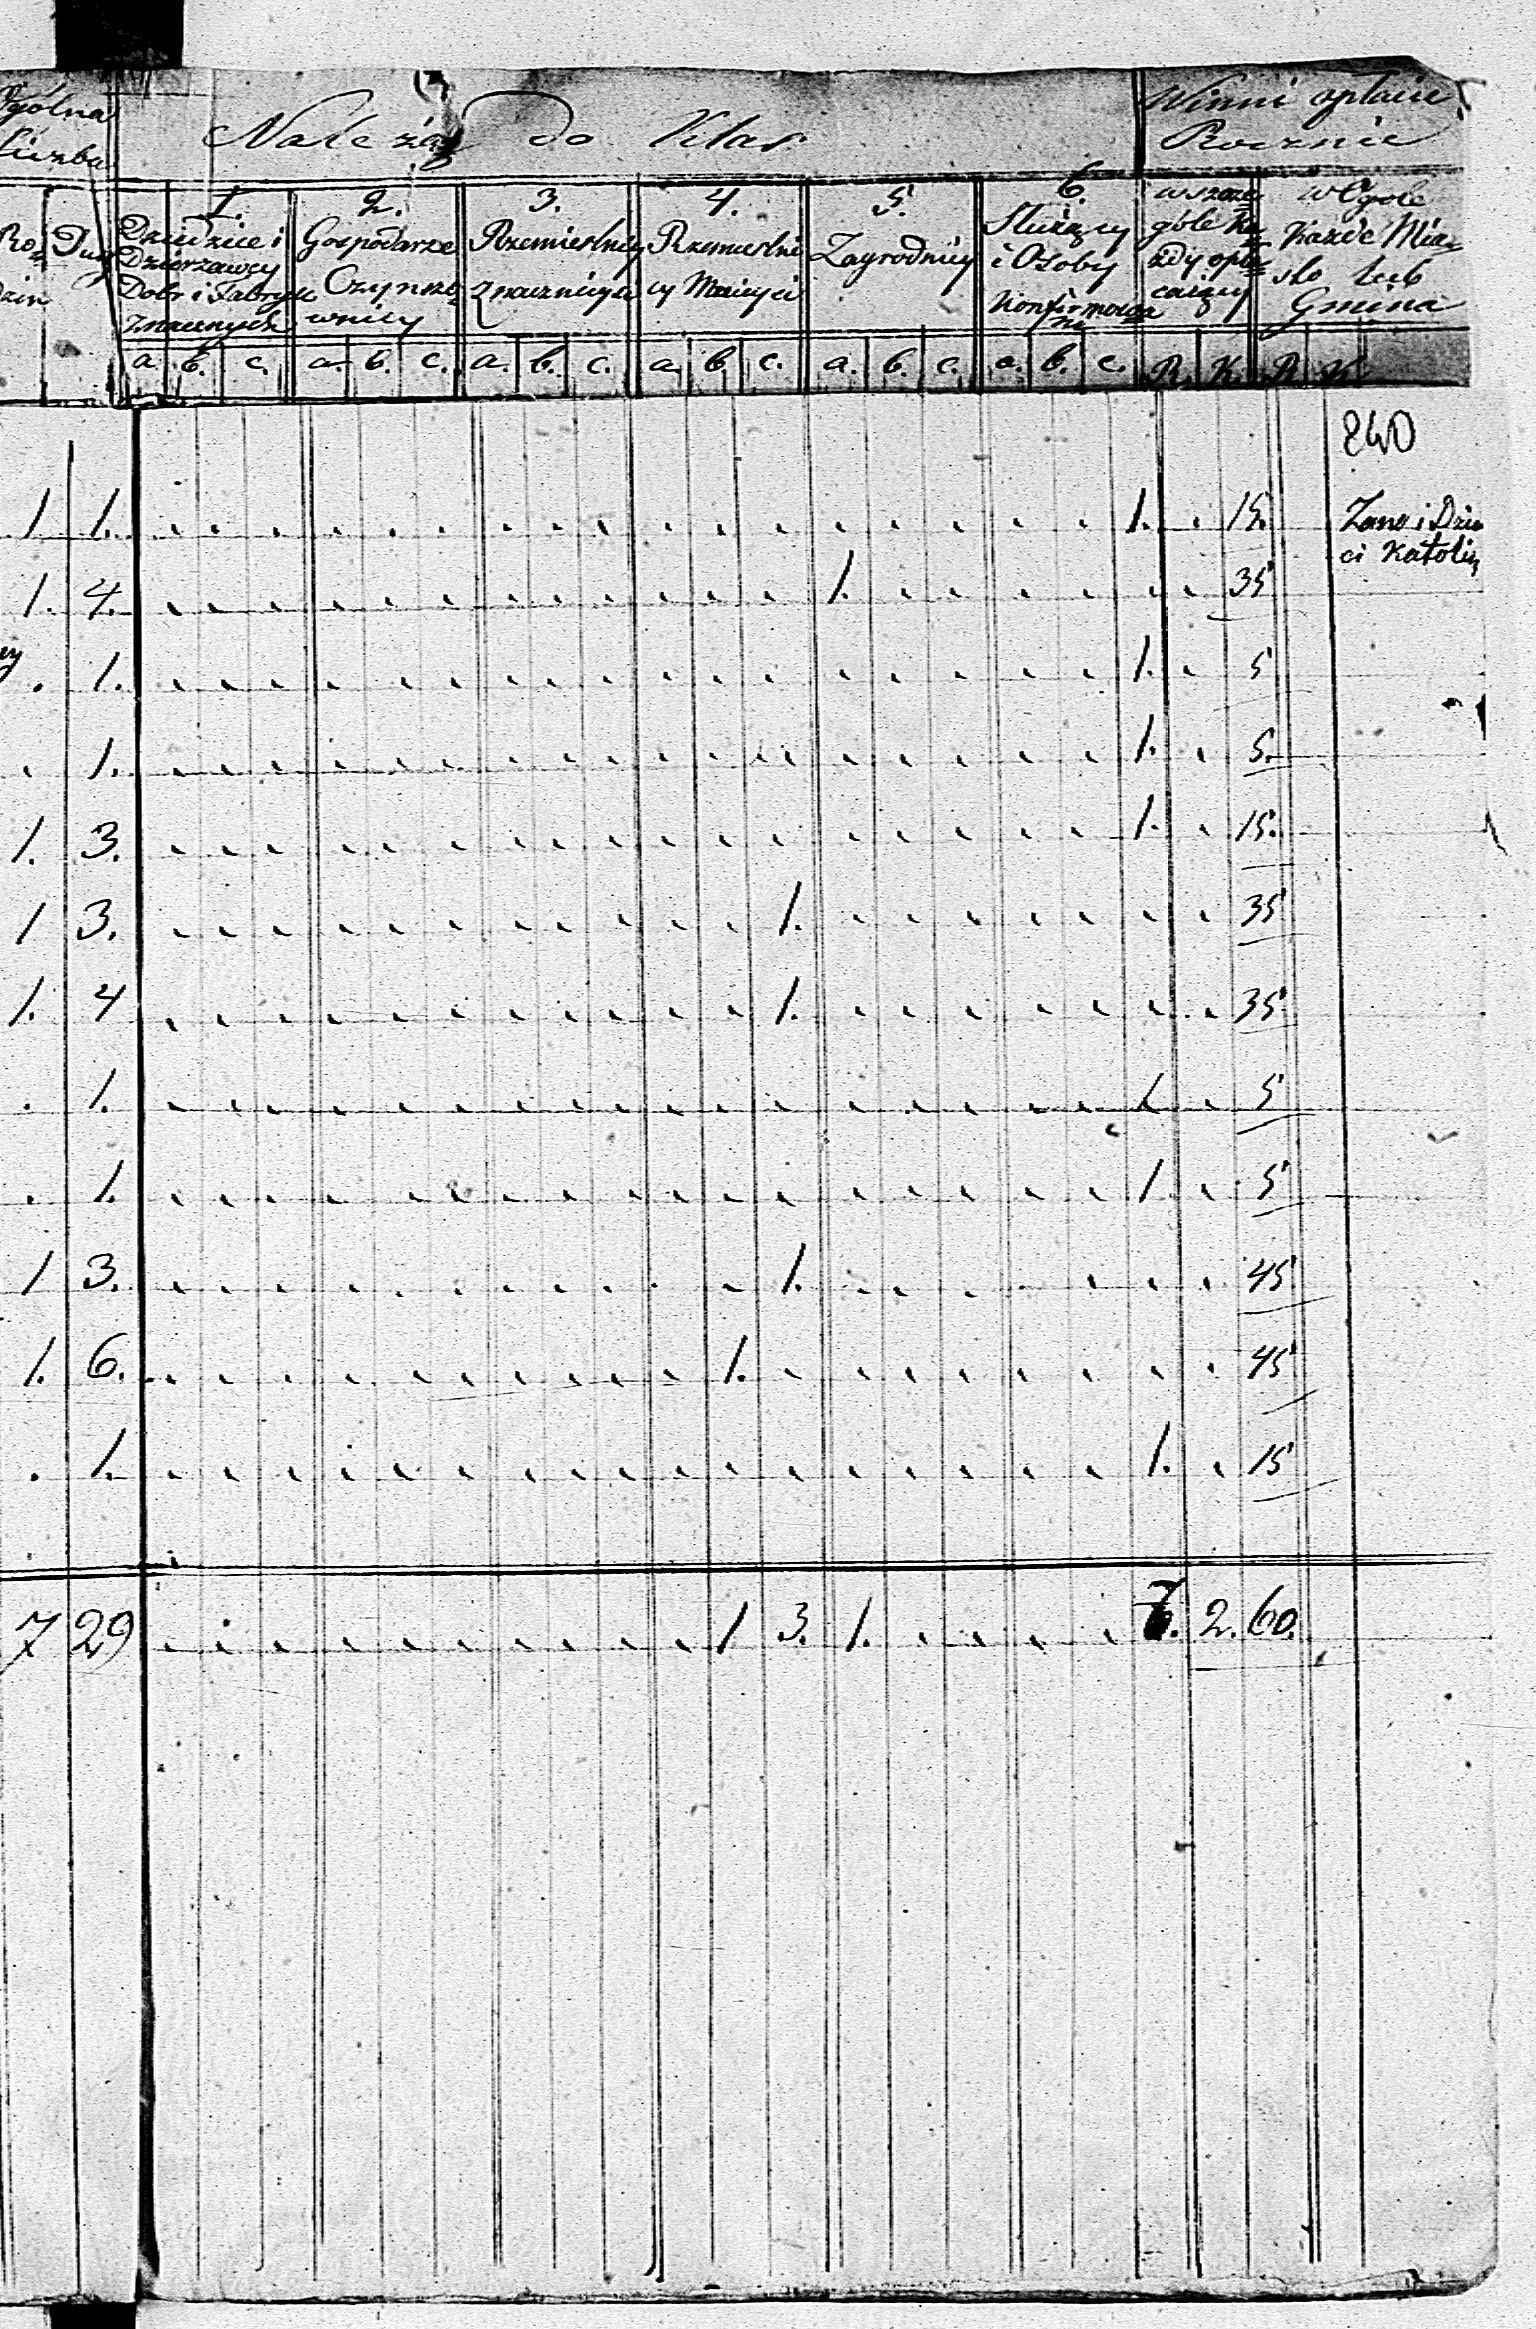 Ogólna Liczba
Należą do Klas
Winni opłacić Rocznie
Ro=dzin
Dusz
1. Dziedzice i Dzierzawcy Dobr i Fabryk Znacznych
2. Gospodarze Czynszo=wnicy
3. Rzemieslnicy Znacznieysi
4. Rzemieslni=cy Mnieysi
5. Zagrodnicy
6. Służący i Osoby Konfirmowa=ne
w szcze=góle Ka=żdy opła=caiący
w Ogole Każde Mia=sto lub Gmina
a. b. c. a. b. c. a. b. c. a. b. c. a. b. c. a. b. c. R. K. R. K.
240
1 1. 1. 15.
Zona i Dzie
ci Katolic
1. 4. 1. 35
. 1. 1. 5
. 1. 1. 5.
1. 3. 1. 15.
1 3. 1. 35
1. 4 1. 35
. 1. 1 5
. 1. 1 5
1 3. 1. 45
1. 6. 1. 45
. 1. 1. 15
7 29 1 3. 1. 7. 2. 60.